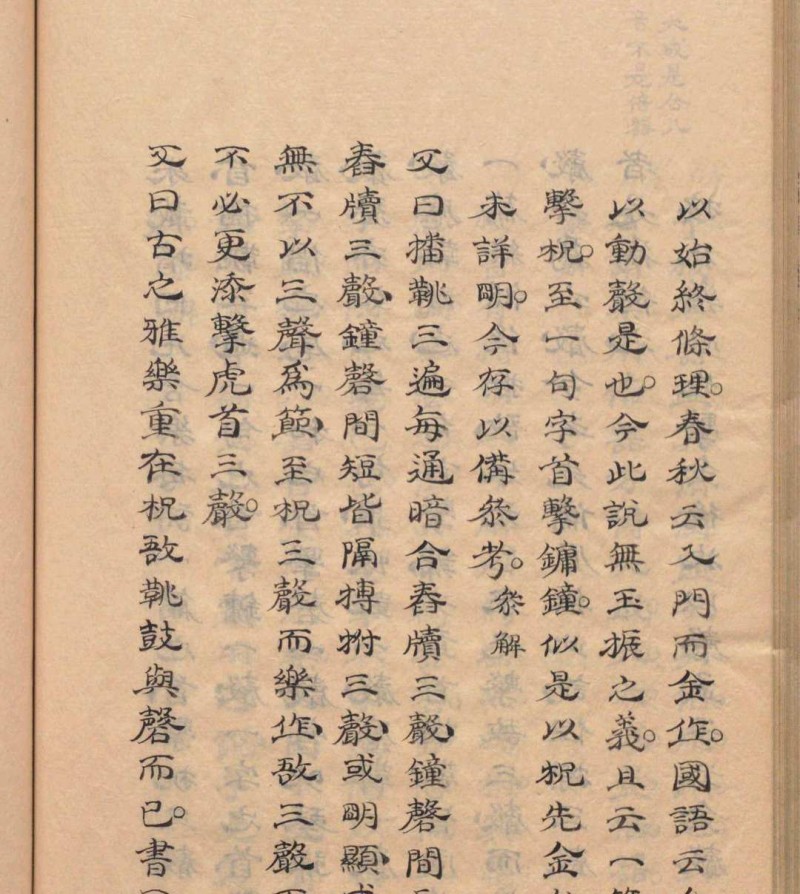 以始終條理。春秋云入門而金作。國語云
以動聲是也。今此說無玉振之義。且云一
擊柷。至一句字首擊鏞鐘。似是以柷先金
未詳明。今存以俻叅考。叅解
又曰播鞉三遍每通暗合舂牘三聲、鐘磬間
舂牘三聲、鐘磬間短皆隔搏拊三聲、或明顯
無不以三聲爲節、至柷三聲而樂作、敔三聲
不必更添擊虎首三聲。
又曰古之雅樂重在柷敔鞉鼓與磬而已。書